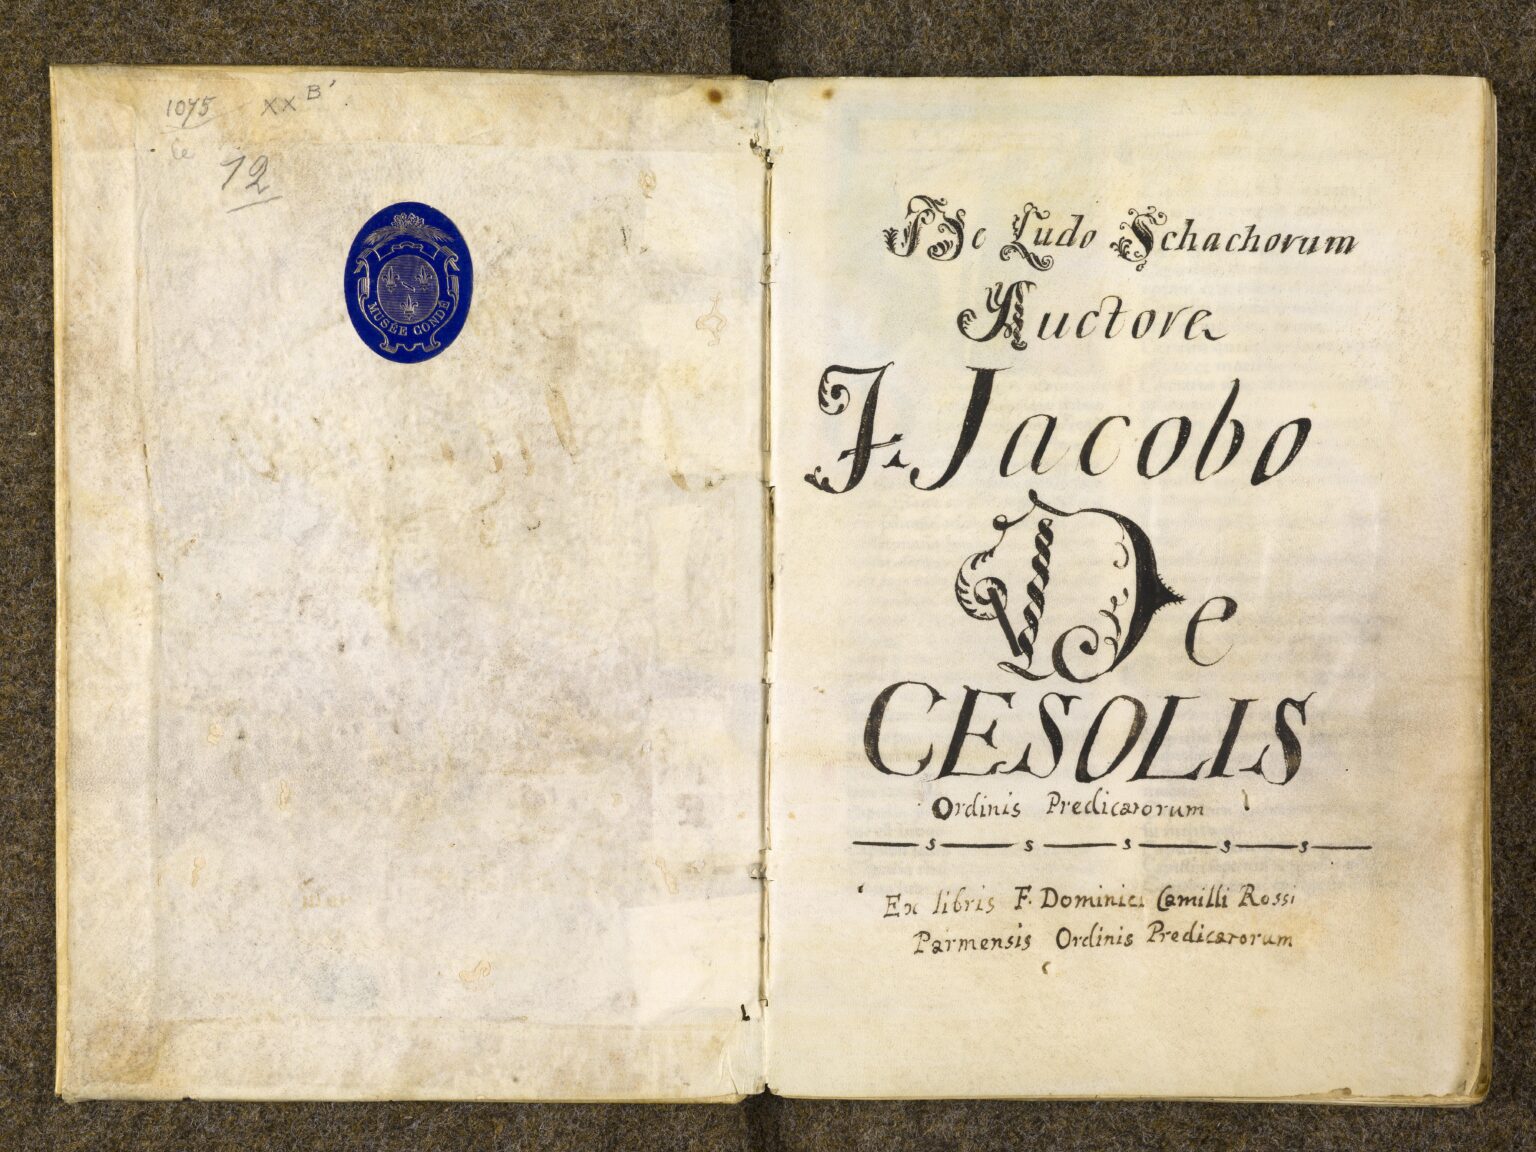 1075 XX B'
Ce
12
MUSÉE CONDÉ
De Ludo Schachorum
Auctore
F. Jacobo
De
CESOLIS
Ordinis Predicatorum
s s s s s
Ex libris F. Dominici Camilli Rossi
Parmensis Ordinis Predicatorum